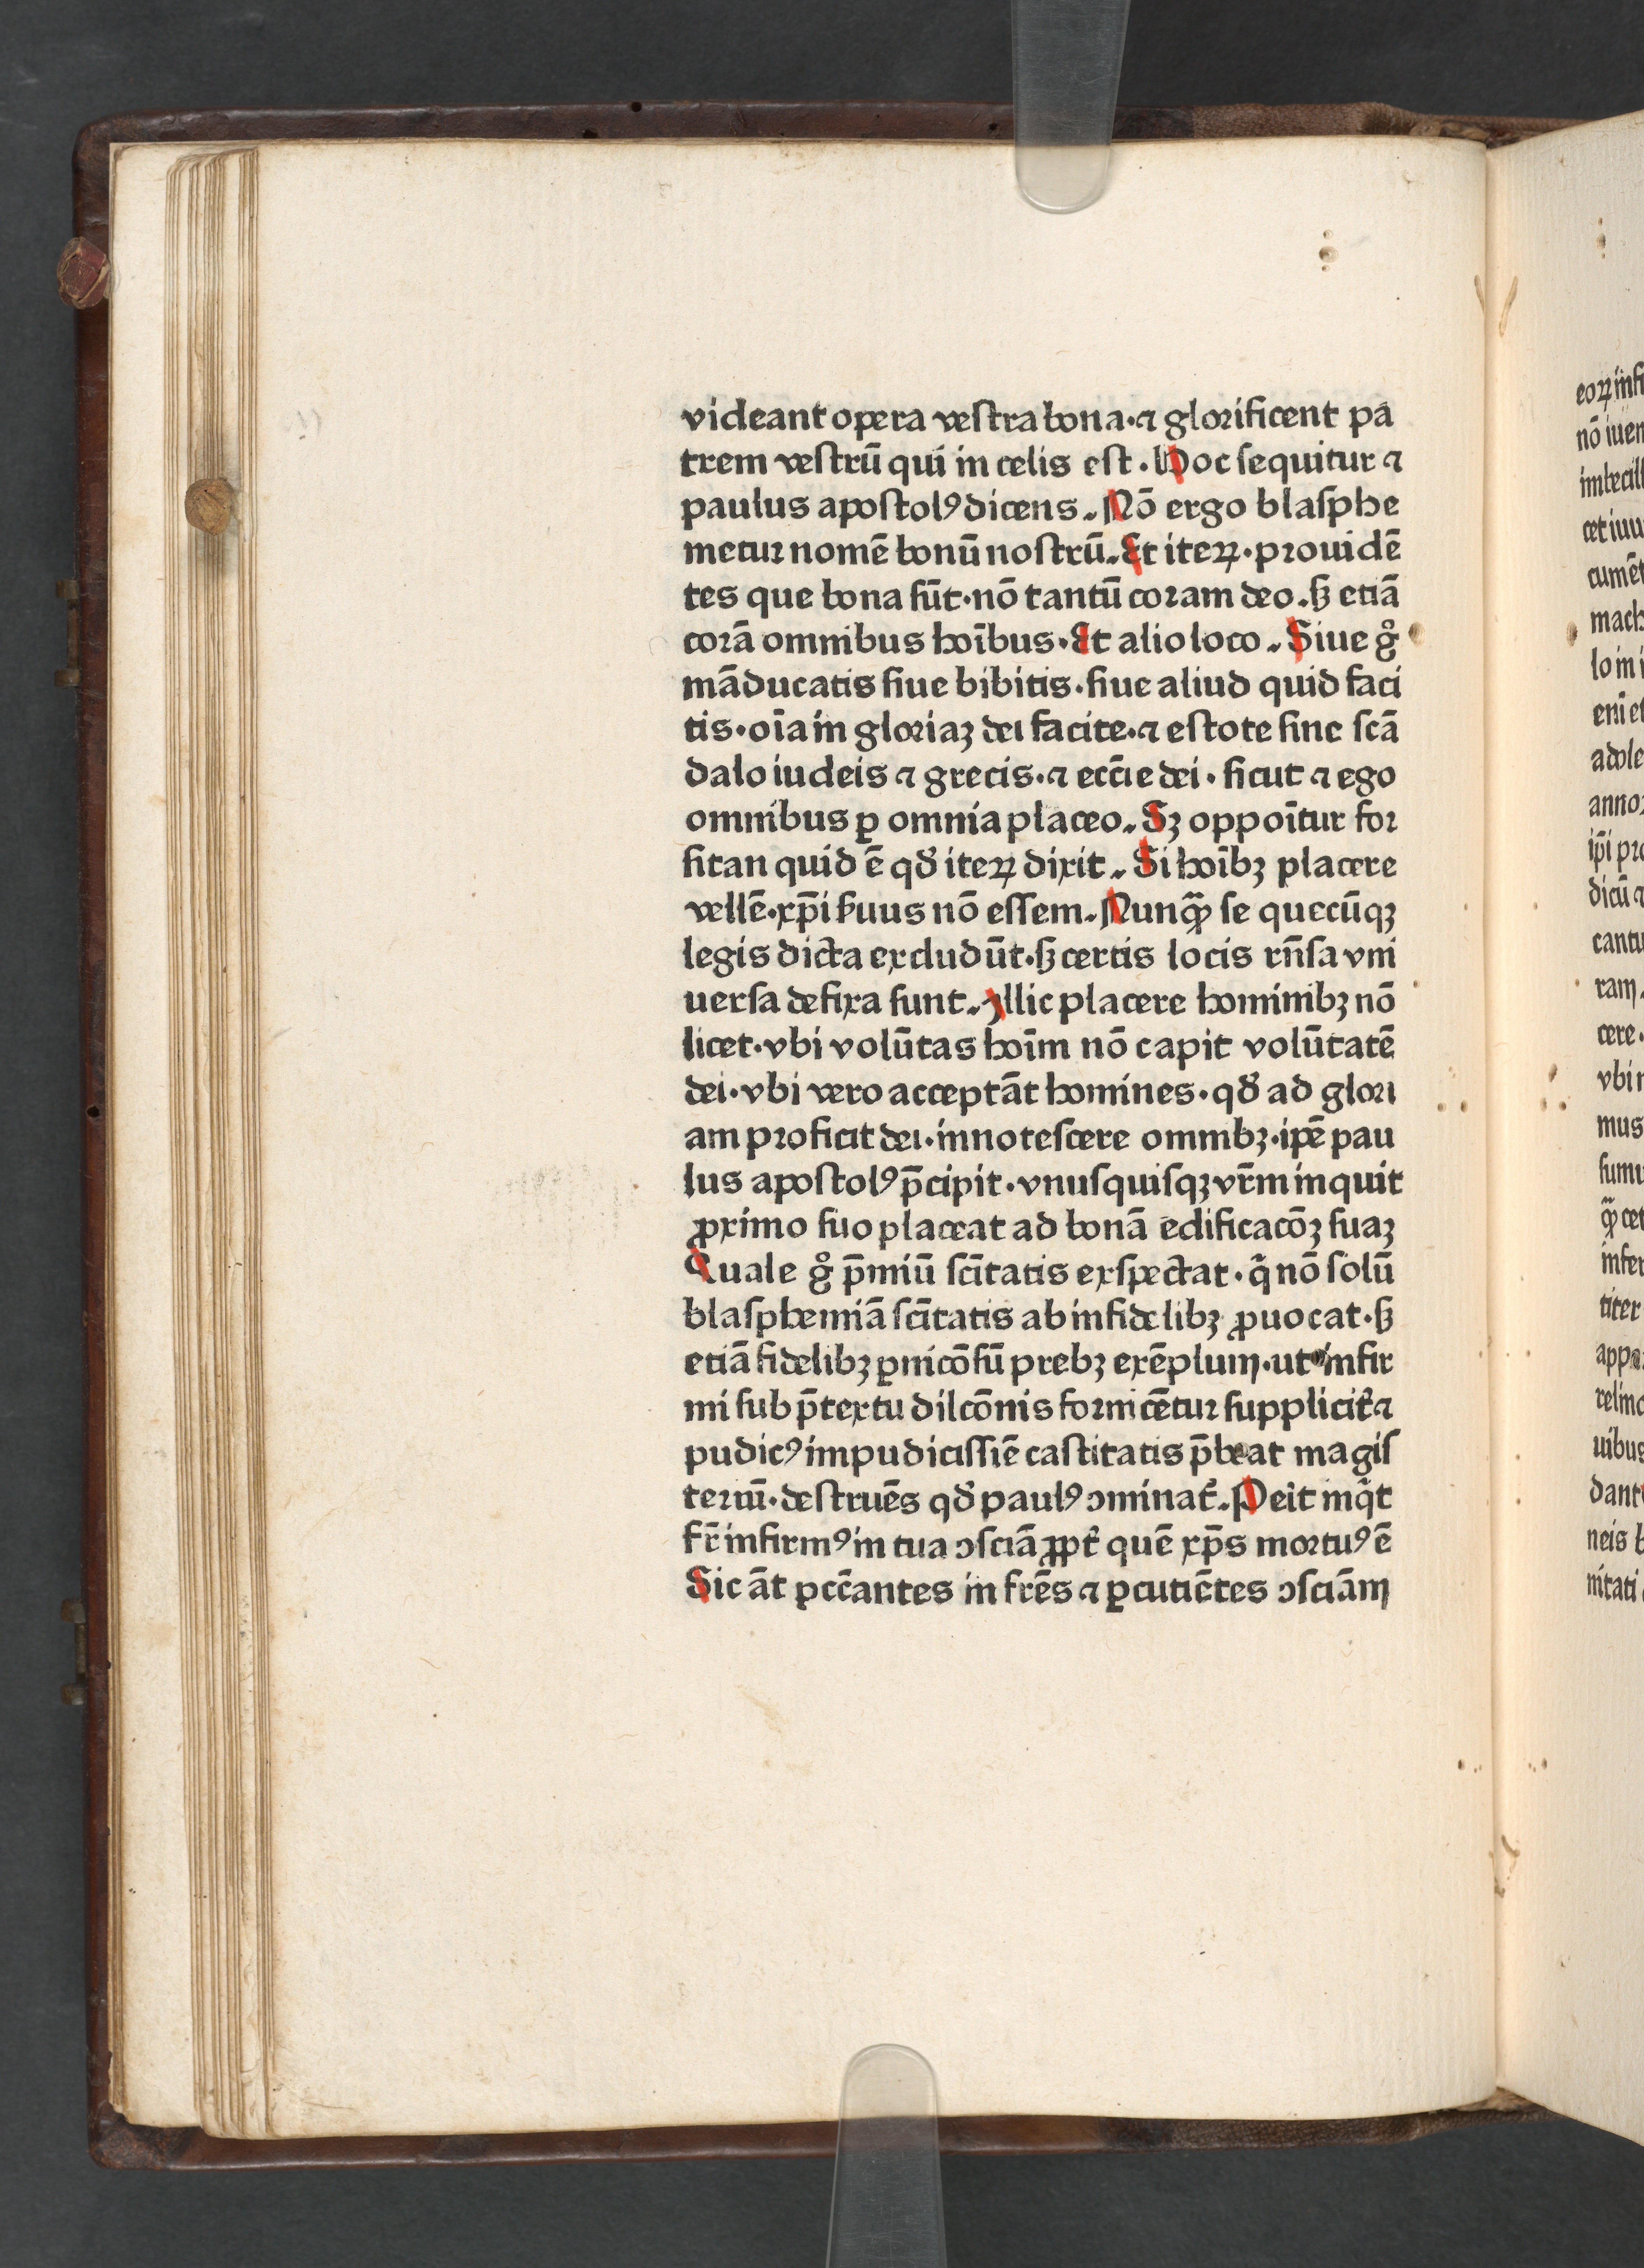 videant opera vestra bona·⁊ glorificent pa
trem vestrū qui in celis est. Hoc sequitur ⁊
paulus apostolꝰ dicens. Nō ergo blasphe
metur nomē bonū nostrū. Et iteꝝ·prouidē
tes que bona sūt·nō tantū coram deo. sꝫ etiā
corā omnibus hoībus. Et alio loco. Siue gͦ
māducatis siue bibitis·siue aliud quid faci
tis·oīa in gloriaꝫ dei facite·⁊ estote sine scā
dalo iudeis ⁊ grecis·⁊ ecc̄ie dei· sicut ⁊ ego
omnibus ꝑ omnia placeo. Sꝫ oppoītur for
sitan quid ē qđ iteꝝ dixit. Si hoībꝫ placere
vellē·xp̄i ẜuus nō essem. Nunꝙ̄ se quecūqꝫ
legis dicta excludūt·sꝫ certis locis rn̄sa vni
uersa defixa sunt. Illic placere hominibꝫ nō
licet·vbi volūtas hoīm nō capit volūtatē
dei·vbi vero acceptāt homines·qđ ad glori
am proficit dei·innotescere omnibꝫ·ip̄e pau
lus apostolꝰ p̄cipit·vnusquisqꝫ vr̄m inquit
ꝓximo suo placeat ad bonā edificacōꝫ suaꝫ
Quale gͦ p̄miū scītatis exspectat·q̄ nō solū
blasphemiā scītatis ab infidelibꝫ ꝓuocat·sꝫ
etiā fidelibꝫ ꝑnicōsū prebꝫ exēplum·ut infir
mi sub p̄textu dilcōnis fornicētur supplicit̄ ⁊
pudicꝰ impudicissīe castitatis p̄beat magis
teriū·destruēs qđ paulꝰ ꝯminat̄. Peit inq̄t
fr̄ infirmꝰ in tua ꝯsciā ꝓpt̄ quē xp̄s mortuꝰ ē
Sic āt pcc̄antes in fr̄es ⁊ ꝑcutiētes ꝯsciām